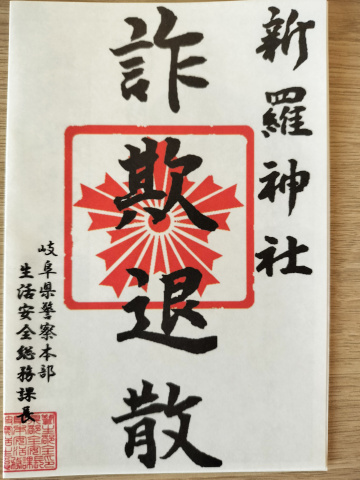 新羅神社
詐欺退散
岐阜県警察本部
生活安全総務課長